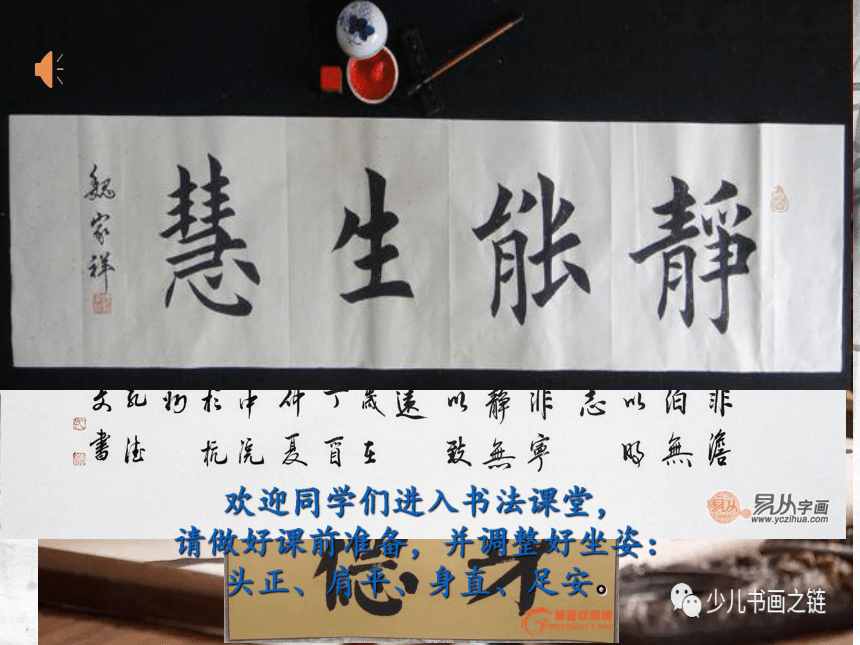 靜能生慧
魏家祥
非澹
泊無
以明
志
非寧
靜無
以致
遠
歲在
丁酉
仲夏
中浣
於杭
州
文書
易从字画
www.yczihua.com
欢迎同学们进入书法课堂，
请做好课前准备，并调整好坐姿：
头正、肩平、身直、足安。
少儿书画之链